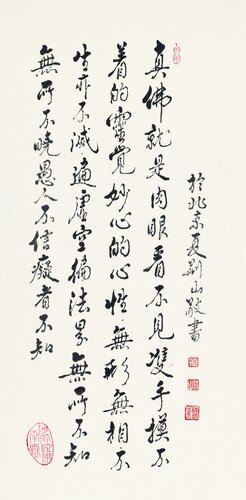 真佛就是肉眼看不見雙手摸不
着的靈覺妙心的心性無形無相不
生亦不滅遍虛空摘法界無所不知
無所不曉愚人不信癡者不知
於北京夏荊山敬書